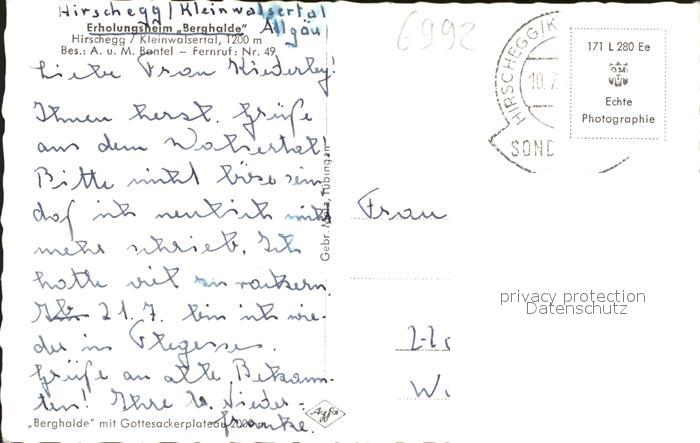 Hirschegg / Kleinwalsertal
Allgäu
Erholungsheim „Berghalde"
Hirschegg / Kleinwalsertal, 1200 m
Bes.: A. u. M. Bantel – Fernruf: Nr. 49
Liebe Frau
Ihnen herzl. Grüße
aus dem Walsertal!
Bitte nicht böse sein,
daß ich neulich nicht
mehr schrieb. Ich
hatte viel zu rackern.
21.7. bin ich wie-
der in
Grüße an alle Bekann-
ten! Ihre
„Berghalde" mit Gottesackerplateau 2000 m
Gebr. Metz, Tübingen
Agfa
6992
HIRSCHEGG/K
10.7.
SOND
171 L 280 Ee
Echte
Photographie
Frau
privacy protection
Datenschutz